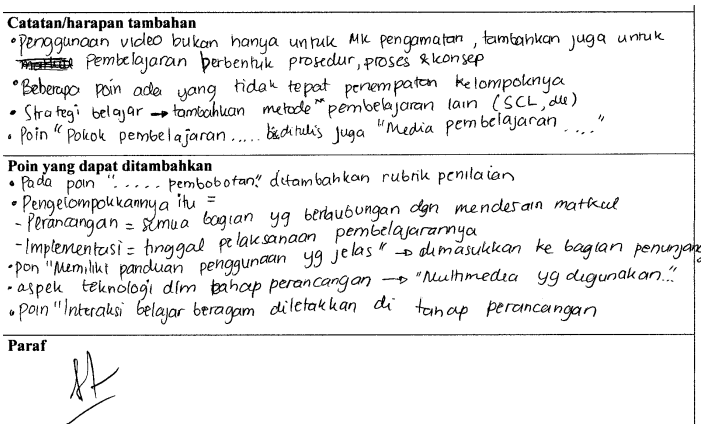 Catatan/harapan tambahan
• Penggunaan video bukan hanya untuk MK pengamatan, tambahkan juga untuk
Pembelajaran berbentuk prosedur, proses & konsep
• Beberapa poin ada yang tidak tepat penempatan kelompoknya
• Strategi belajar → tambahkan metode" pembelajaran lain (SCL, dll)
• Poin "Pokok pembelajaran ..... ditulis juga "Media pembelajaran ...."
Poin yang dapat ditambahkan
• Pada poin "..... pembobotan" ditambahkan rubrik penilaian
• Pengelompokkannya itu =
- Perancangan = semua bagian yg berhubungan dgn mendesain matkul
- Implementasi = tinggal pelaksanaan pembelajarannya
• poin "Memiliki panduan penggunaan yg jelas" → dimasukkan ke bagian penunjang
• aspek teknologi dlm tahap perancangan → "Multimedia yg digunakan.."
• poin "Interaksi belajar beragam diletakkan di tahap perancangan
Paraf